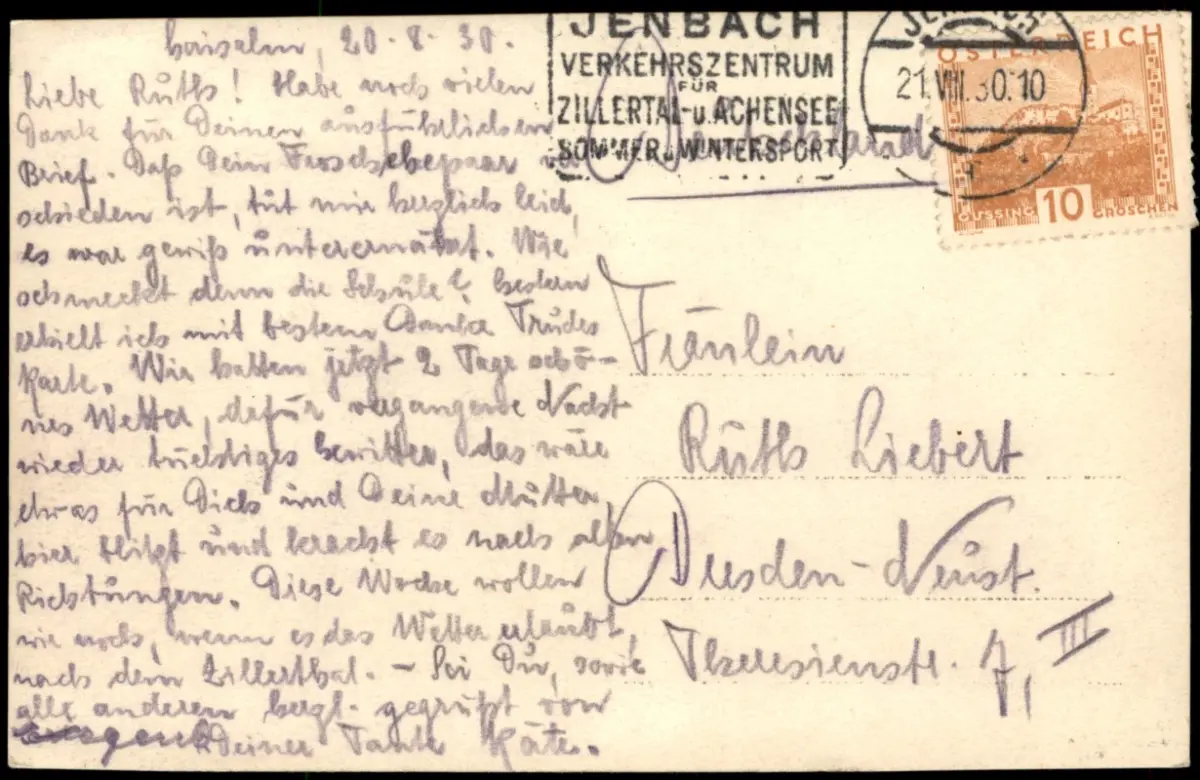 Gaisalm, 20.8.30.
Liebe Ruth! Habe noch vielen
Dank für Deinen ausführlichen
Brief. Daß Dein Froschehepaar ver-
schieden ist, tut mir herzlich leid,
es war gewiß unterernährt. Wie
schmeckt denn die Schule? Gestern
erhielt ich mit bestem Danke Trudes
Karte. Wir hatten jetzt 2 Tage schö-
nes Wetter, dafür vergangene Nacht
wieder tüchtiges Gewitter, das wäre
etwas für Dich und Deine Mutter,
hier blitzt und kracht es nach allen
Richtungen. Diese Woche wollen
wir noch, wenn es das Wetter erlaubt,
nach dem Zillerthal. - Sei Du, sowie
alle anderen herzl. gegrüßt von
Deiner Tante Käte.
JENBACH
VERKEHRSZENTRUM
FÜR
ZILLERTAL-u.ACHENSEE
SOMMER u. WINTERSPORT
JENBACH
21.VIII.30.10
ÖSTERREICH
GÜSSING 10 GROSCHEN
Deutschland
Fräulein
Ruth Liebert
Dresden-Neust.
Theresienstr. 7, III